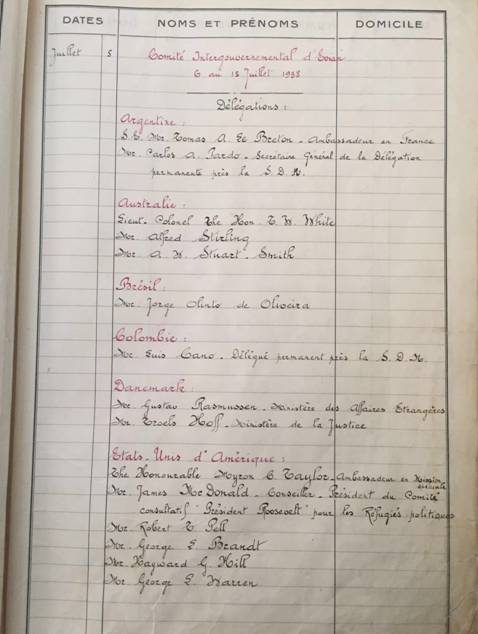 DATES NOMS ET PRÉNOMS DOMICILE
Juillet 5 Comité Intergouvernemental d'Evian
6 au 15 Juillet 1938
Délégations :
Argentine :
S.E. Mr. Tomas A. Le Breton - Ambassadeur en France
Mr. Carlos A. Pardo - Secrétaire Général de la Délégation
permanente près la S.D.N.
Australie :
Lieut. Colonel The Hon. T. W. White
Mr Alfred Stirling
Mr A. W. Stuart-Smith
Brésil :
Mr. Jorge Olinto de Oliveira
Colombie :
Mr Luis Cano - Délégué permanent près la S.D.N.
Danemark :
Mr Gustav Rasmussen - Ministère des Affaires Etrangères
Mr. Troels Hoff - Ministère de la Justice
Etats-Unis d'Amérique :
The Honourable Myron C. Taylor - Ambassadeur en Mission
spéciale
Mr. James McDonald - Conseiller - Président du Comité
consultatif "Président Roosevelt" pour les Réfugiés politiques
Mr Robert T. Pell
Mr. George L. Brandt
Mr. Hayward G. Hill
Mr George L. Warren